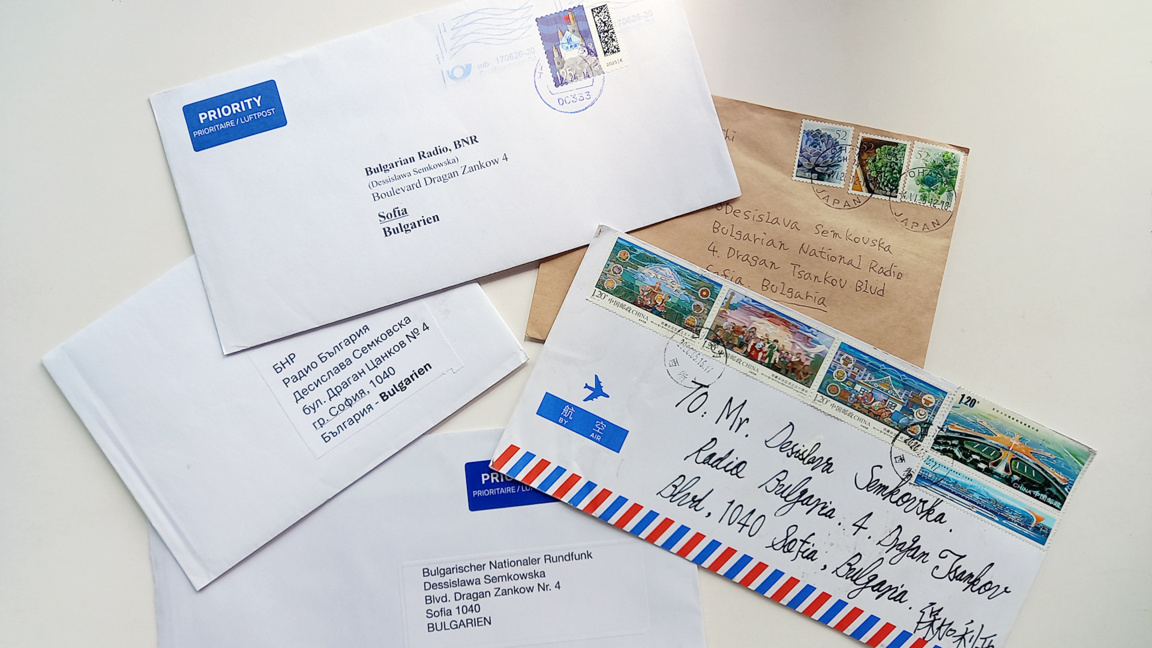 PRIORITY
PRIORITAIRE / LUFTPOST
170626-20
DC333
Bulgarian Radio, BNR
(Dessislawa Semkowska)
Boulevard Dragan Zankow 4
Sofia
Bulgarien
52
52
52
JAPAN
JAPAN
Desislava Semkovska
Bulgarian National Radio
4. Dragan Tsankov Blvd
Sofia. Bulgaria
БНР
Радио България
Десислава Семковска
бул. Драган Цанков № 4
гр. София, 1040
България - Bulgarien
1.20
中国邮政CHINA
中国邮政CHINA
1.20
1.20
CHINA 中国邮政
航空
BY AIR
To: Mr. Desislava Semkovska.
Radio Bulgaria. 4. Dragan Tsankov
Blvd, 1040 Sofia, Bulgaria.
保加利亚
PRIORITAIRE
Bulgarischer Nationaler Rundfunk
Dessislawa Semkowska
Blvd. Dragan Zankow Nr. 4
Sofia 1040
BULGARIEN